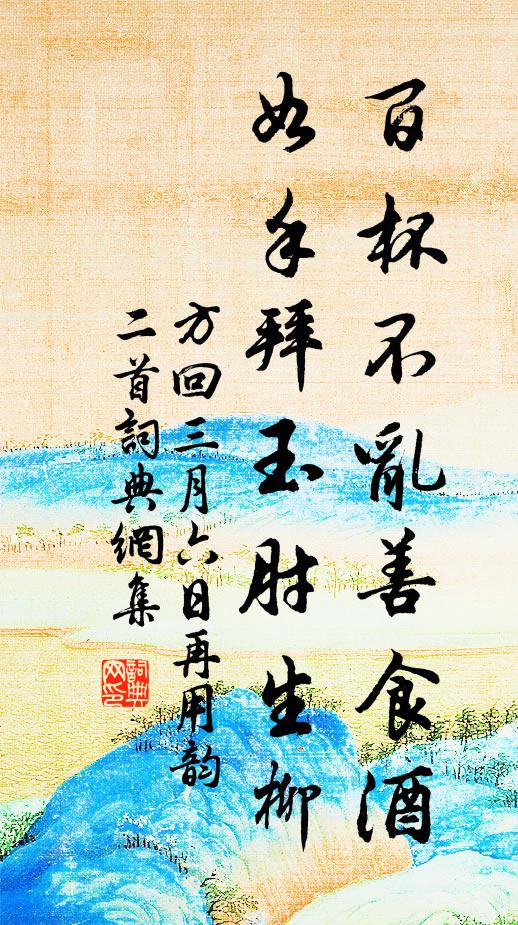 百杯不亂善食酒
如手拜玉肘生柳
方回三月六日再用韵
二首詞典網集
詞典网印